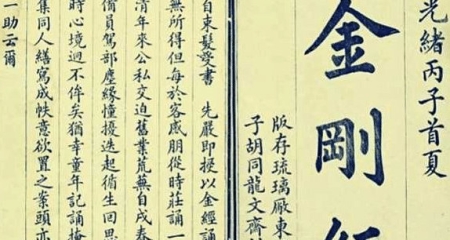 光緒丙子首夏
金剛經
版存琉璃廠東
子胡同龍文齋
自束髮受書 先嚴即授以金經誦
無所得但每於客感朋從時莊誦一
清年來公私交迫舊業荒蕪自戌春
備員駕部塵緣憧擾迭起循生回思
時心境迥不侔矣猶幸童年記誦掩
集同人繕寫成帙意欲置之案頭亦
一助云爾